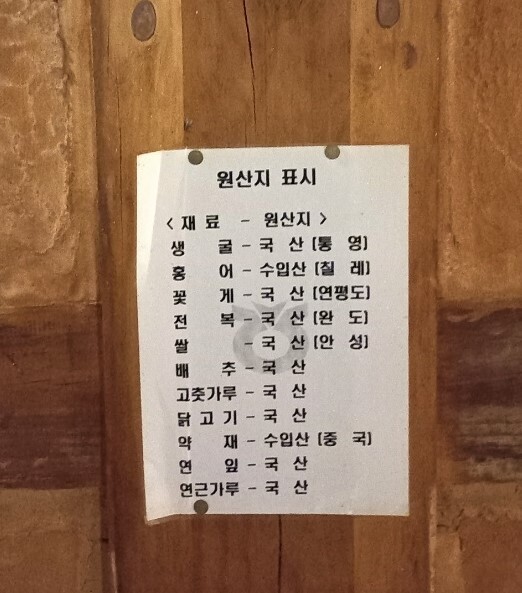 원산지 표시
< 재 료 - 원산지 >
생 굴 - 국 산 (통 영)
홍 어 - 수입산 (칠 레)
꽃 게 - 국 산 (연평도)
전 복 - 국 산 (완 도)
쌀 - 국 산 (안 성)
배 추 - 국 산
고춧가루 - 국 산
닭 고 기 - 국 산
약 재 - 수입산 (중 국)
연 잎 - 국 산
연근가루 - 국 산